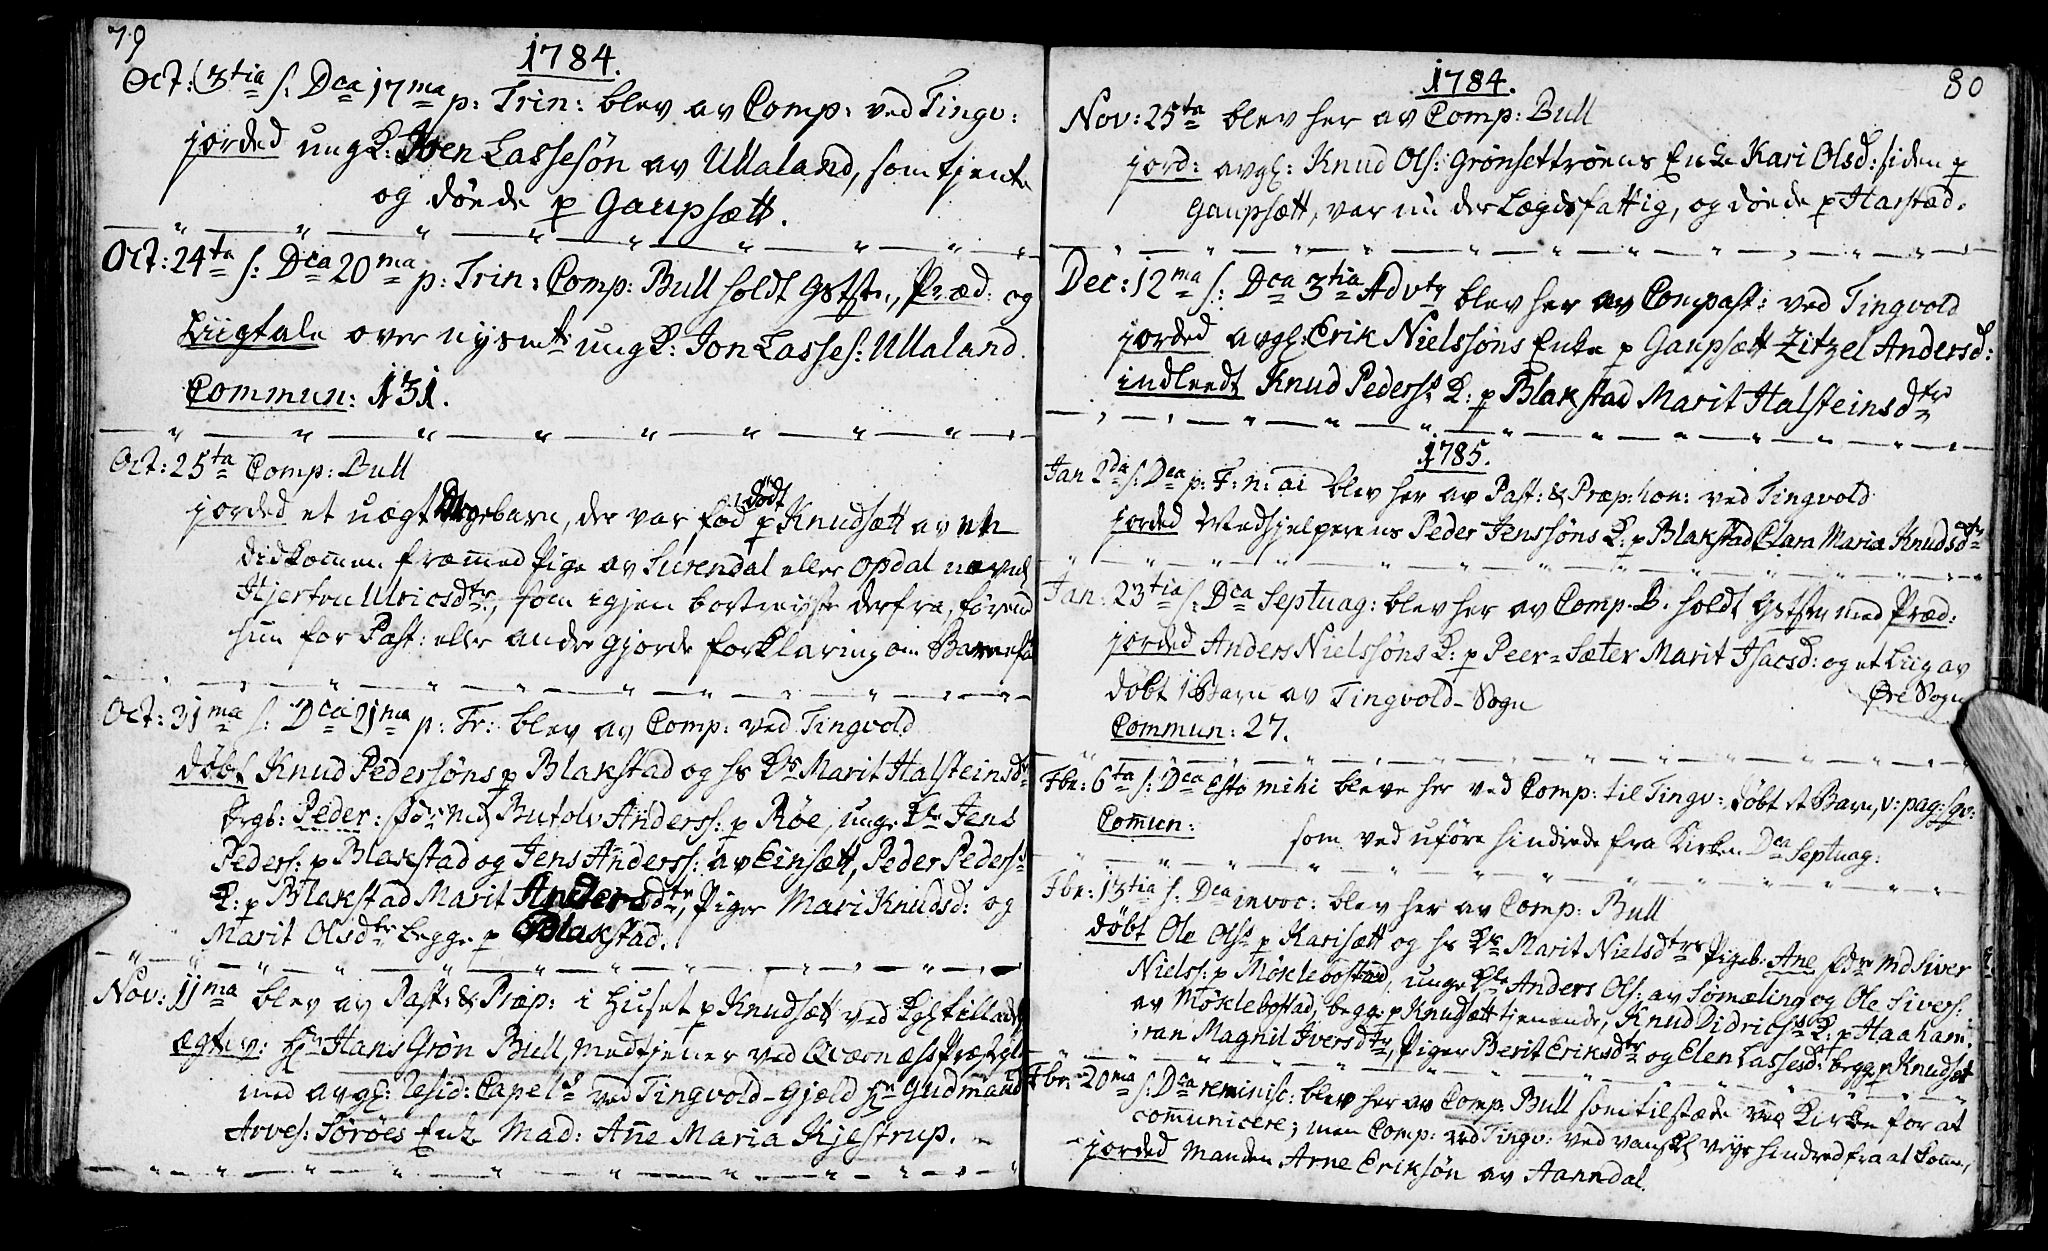 79
1784.
Oct: 3tia s: Dca 17ma p: Trin: blev av Comp: ved Tingv:
jorded ungK: Iven Lassesøn av Ullaland, som tjente
og døde p Gaupsætt.
Oct: 24ta s: Dca 20ma p: Trin: Comp: Bull holdt Gstste, Præd: og
Liigtale over nysmt: ungK: Jon Lasses: Ullaland.
Commun: 131.
Oct: 25ta Comp: Bull
jorded et uægt barn, der var fød død p Knudsætt av en
didkommen fræmmed Pige av Surendal eller Opdal nævnl
Hjertru Ulricsdtr, som igjen bortreyste derfra, førend
hun for Past: eller andre gjorde forklaring om
Oct: 31ma s: Dca 21ma p: Tr: blev av Comp: ved Tingvold
døbt Knud Pedersøns p Blakstad og hs Ks Marit Halsteinsdr
Drgb: Peder: Butolv Anderss: p Røe, unge Jens
Peders: p Blakstad og Jens Anderss: av Einsætt, Peder Peders:
K: p Blakstad Marit Andersdtr, Piger Mari Knudsd: og
Marit Olsdtr begge p Blakstad.
Nov: 11ma blev av Past: & Præp: i Huset p Knudsætt ved Kgl tillad
ægtev: Hr Hans Grøn Bull, Medtjener ved Qværnæss Præstgl
med avgl: resid: Capels ved Tingvold-Gjæld Hr Gudmand
Arves: Sørøes Enke Mad: Ane Maria Kjestrup.
80
1784.
Nov: 25ta blev her av Comp: Bull
jord: avgl: Knud Ols: Grønsettrøens Enke Kari Olsd: siden p
Gaupsætt, var nu der Lægdsfattig, og døde p Harstad.
Dec: 12ma s: Dca 3tia Advtg blev her av Compast: ved Tingvold
jorded avgl: Erik Nielssøns Enke p Gaupsætt Zitzel Andersd:
indleedt Knud Peders: K: p Blakstad Marit Halsteinsdtr
1785.
Jan 2da s: Dca p: F: n: ai blev her av Past: & Præp: hon: ved Tingvold
jorded Medhjelperens Peder Jenssøns K: p Blakstad Clara Maria Knudsdtr
Jan: 23tia s: Dca Septuag: blev her av Comp. B. holdt Gstste med Præd:
jorded Anders Nielssøns K: p Peer-Sæter Marit Isacsd: og et Liig av
Øre Sogn
døbt 1 Barn av Tingvold-Sogn
Commun: 27.
Fbr: 6ta s: Dca Esto mihi bleve her ved Comp: til Tingv: døbt et Barn, v: pag: sqv:
Comun: som ved uføre hindrede fra Kirken Dca Septuag:
Fbr: 13tia s: Dca invoc: blev her av Comp: Bull
døbt Ole Ols: p Karisætt og hs Ks Marit Nielsdtrs Pigeb: Ane Siver
Niels: p Møklebostad, unge Anders Ols: av Sømæling og Ole Sivers:
av Møklebostad, begge p Knudsætt tienende, Knud Didrics: K: p Haaham:
ran Magnil Iversdtr, Piger Berit Eriksdtr og Elen Lassesd: begge p Knudsæt
Fbr: 20ma s: Dca reminisc: blev her av Comp: Bull som tilstæde ved Kirke for at
comunicere; men Comp: ved Tingv: ved vansk veye hindred fra at kome,
jorded Manden Arne Eriksøn av Aanndal.